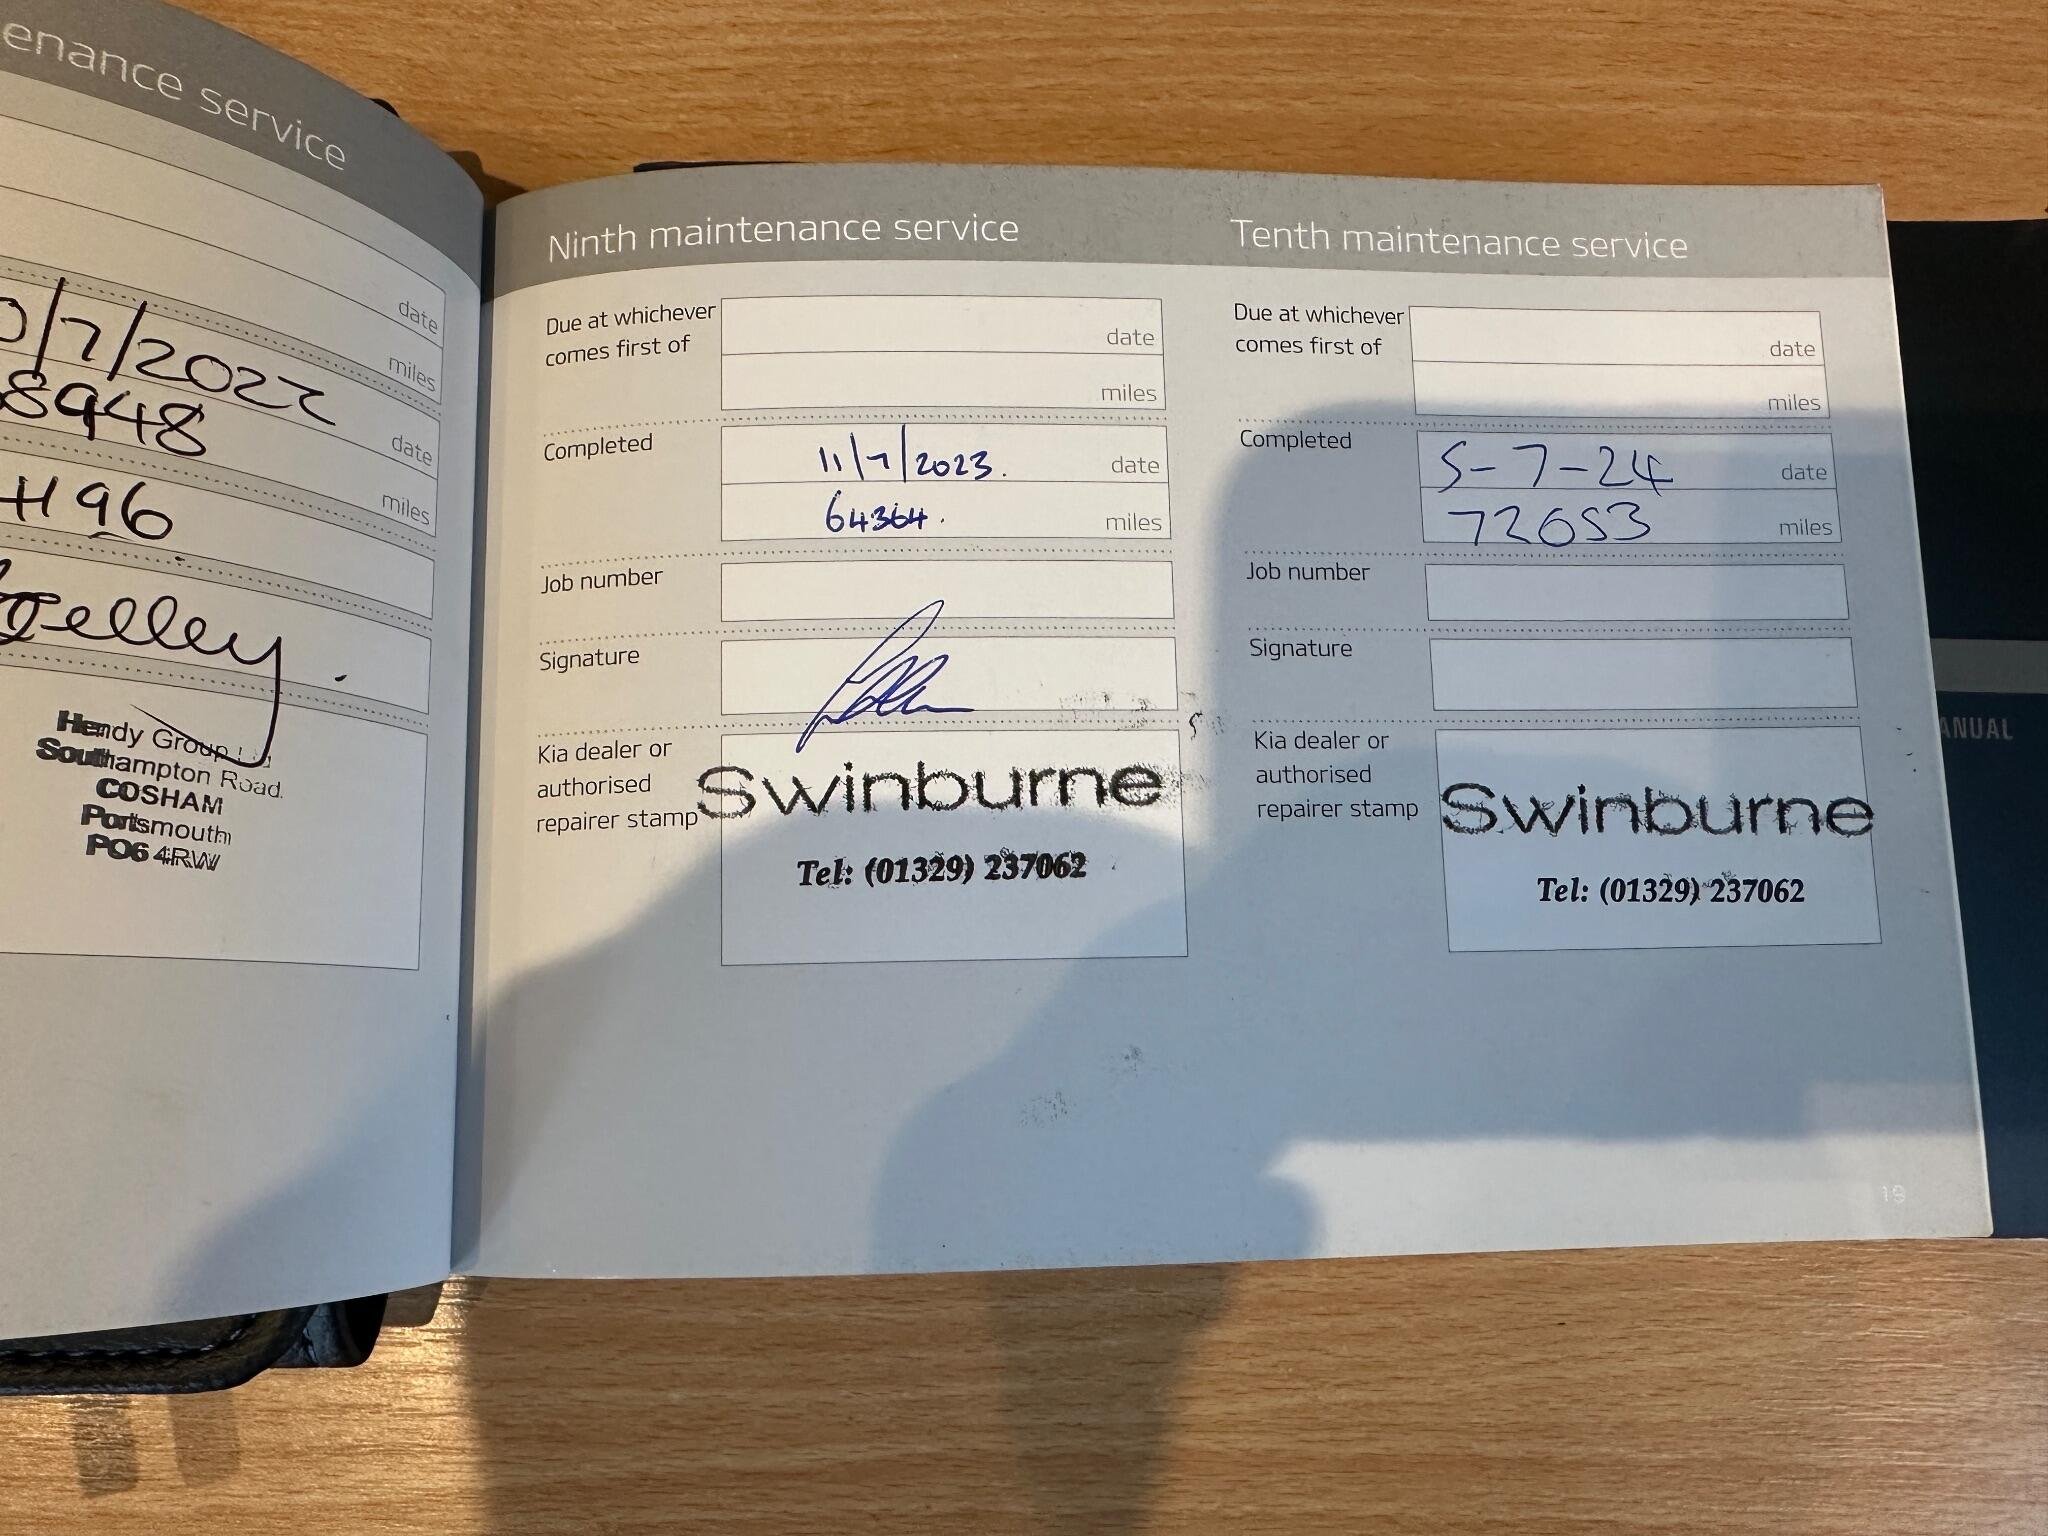 enance service
date
miles
0/7/2022
date
8948
miles
H 96
elley.
Hendy Group
Southampton Road.
COSHAM
Portsmouth
PO6 4RW
Ninth maintenance service
Due at whichever
comes first of
date
miles
Completed
11/7/2023.
date
64364.
miles
Job number
Signature
Kia dealer or
authorised
repairer stamp
Swinburne
Tel: (01329) 237062
Tenth maintenance service
Due at whichever
comes first of
date
miles
Completed
5-7-24
date
72053
miles
Job number
Signature
Kia dealer or
authorised
repairer stamp
Swinburne
Tel: (01329) 237062
19
ANUAL